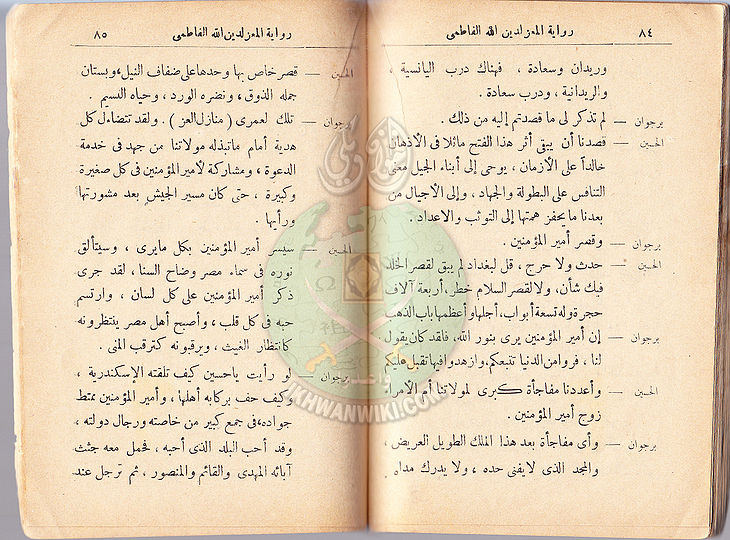 ٨٤ رواية المعز لدين الله الفاطمى
وريدان وسعادة ، فهناك درب اليانسية ،
والريدانية ، ودرب سعادة .
برجوان — لم تذكر لى ما قصدتم إليه من ذلك .
الحسين — قصدنا أن يبقى أثر هذا الفتح ماثلا فى الأذهان
خالداً على الأزمان ، يوحى إلى أبناء الجيل معنى
التنافس على البطولة والجهاد ، وإلى الأجيال من
بعدنا ما يحفز همتها إلى التوثب والاعداد .
برجوان — وقصر أمير المؤمنين .
الحسين — حدث ولا حرج ، قل لبغداد لم يبق لقصر الخلد
فيك شأن ، ولا لقصر السلام خطر ، أربعة آلاف
حجرة وله تسعة أبواب ، أجلها وأعظمها باب الذهب
برجوان — إن أمير المؤمنين يرى بنور الله ، فلقد كان يقول
لنا ، فروا من الدنيا تتبعكم ، وازهدوا فيها تقبل عليكم
الحسين — وأعددنا مفاجأة كبرى لمولاتنا أم الامراء
زوج أمير المؤمنين .
برجوان — وأى مفاجأة بعد هذا الملك الطويل العريض ،
والمجد الذى لا يفنى حده ، ولا يدرك مداه
رواية المعز لدين الله الفاطمى ٨٥
الحسين — قصر خاص بها وحدها على ضفاف النيل ، وبستان
جمله الذوق ، ونضره الورد ، وحياه النسيم .
برجوان — تلك لعمرى ( منازل العز ) . ولقد تتضاءل كل
هدية أمام ماتبذله مولاتنا من جهد فى خدمة
الدعوة ، ومشاركة لأمير المؤمنين فى كل صغيرة
وكبيرة ، حتى كان مسير الجيش بعد مشورتها
ورأيها .
الحسين — سيسر أمير المؤمنين بكل مايرى ، وسيتألق
نوره فى سماء مصر وضاح السنا ، لقد جرى
ذكر أمير المؤمنين على كل لسان ، وارتسم
حبه فى كل قلب ، وأصبح أهل مصر ينتظرونه
كانتظار الغيث ، ويرقبونه كترقب المنى .
برجوان — لو رأيت ياحسين كيف تلقته الإسكندرية ،
وكيف حف بركابه أهلها ، وأمير المؤمنين ممتط
جواده ، فى جمع كبير من خاصته ورجال دولته ،
وقد أحب البلد الذى أحبه ، فحمل معه جثث
آبائه المهدى والقائم والمنصور ، ثم ترجل عند
IKHWANWIKI.COM